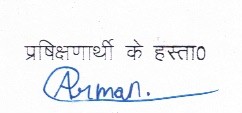 प्रषिक्षणार्थी के हस्ता0
Arman.